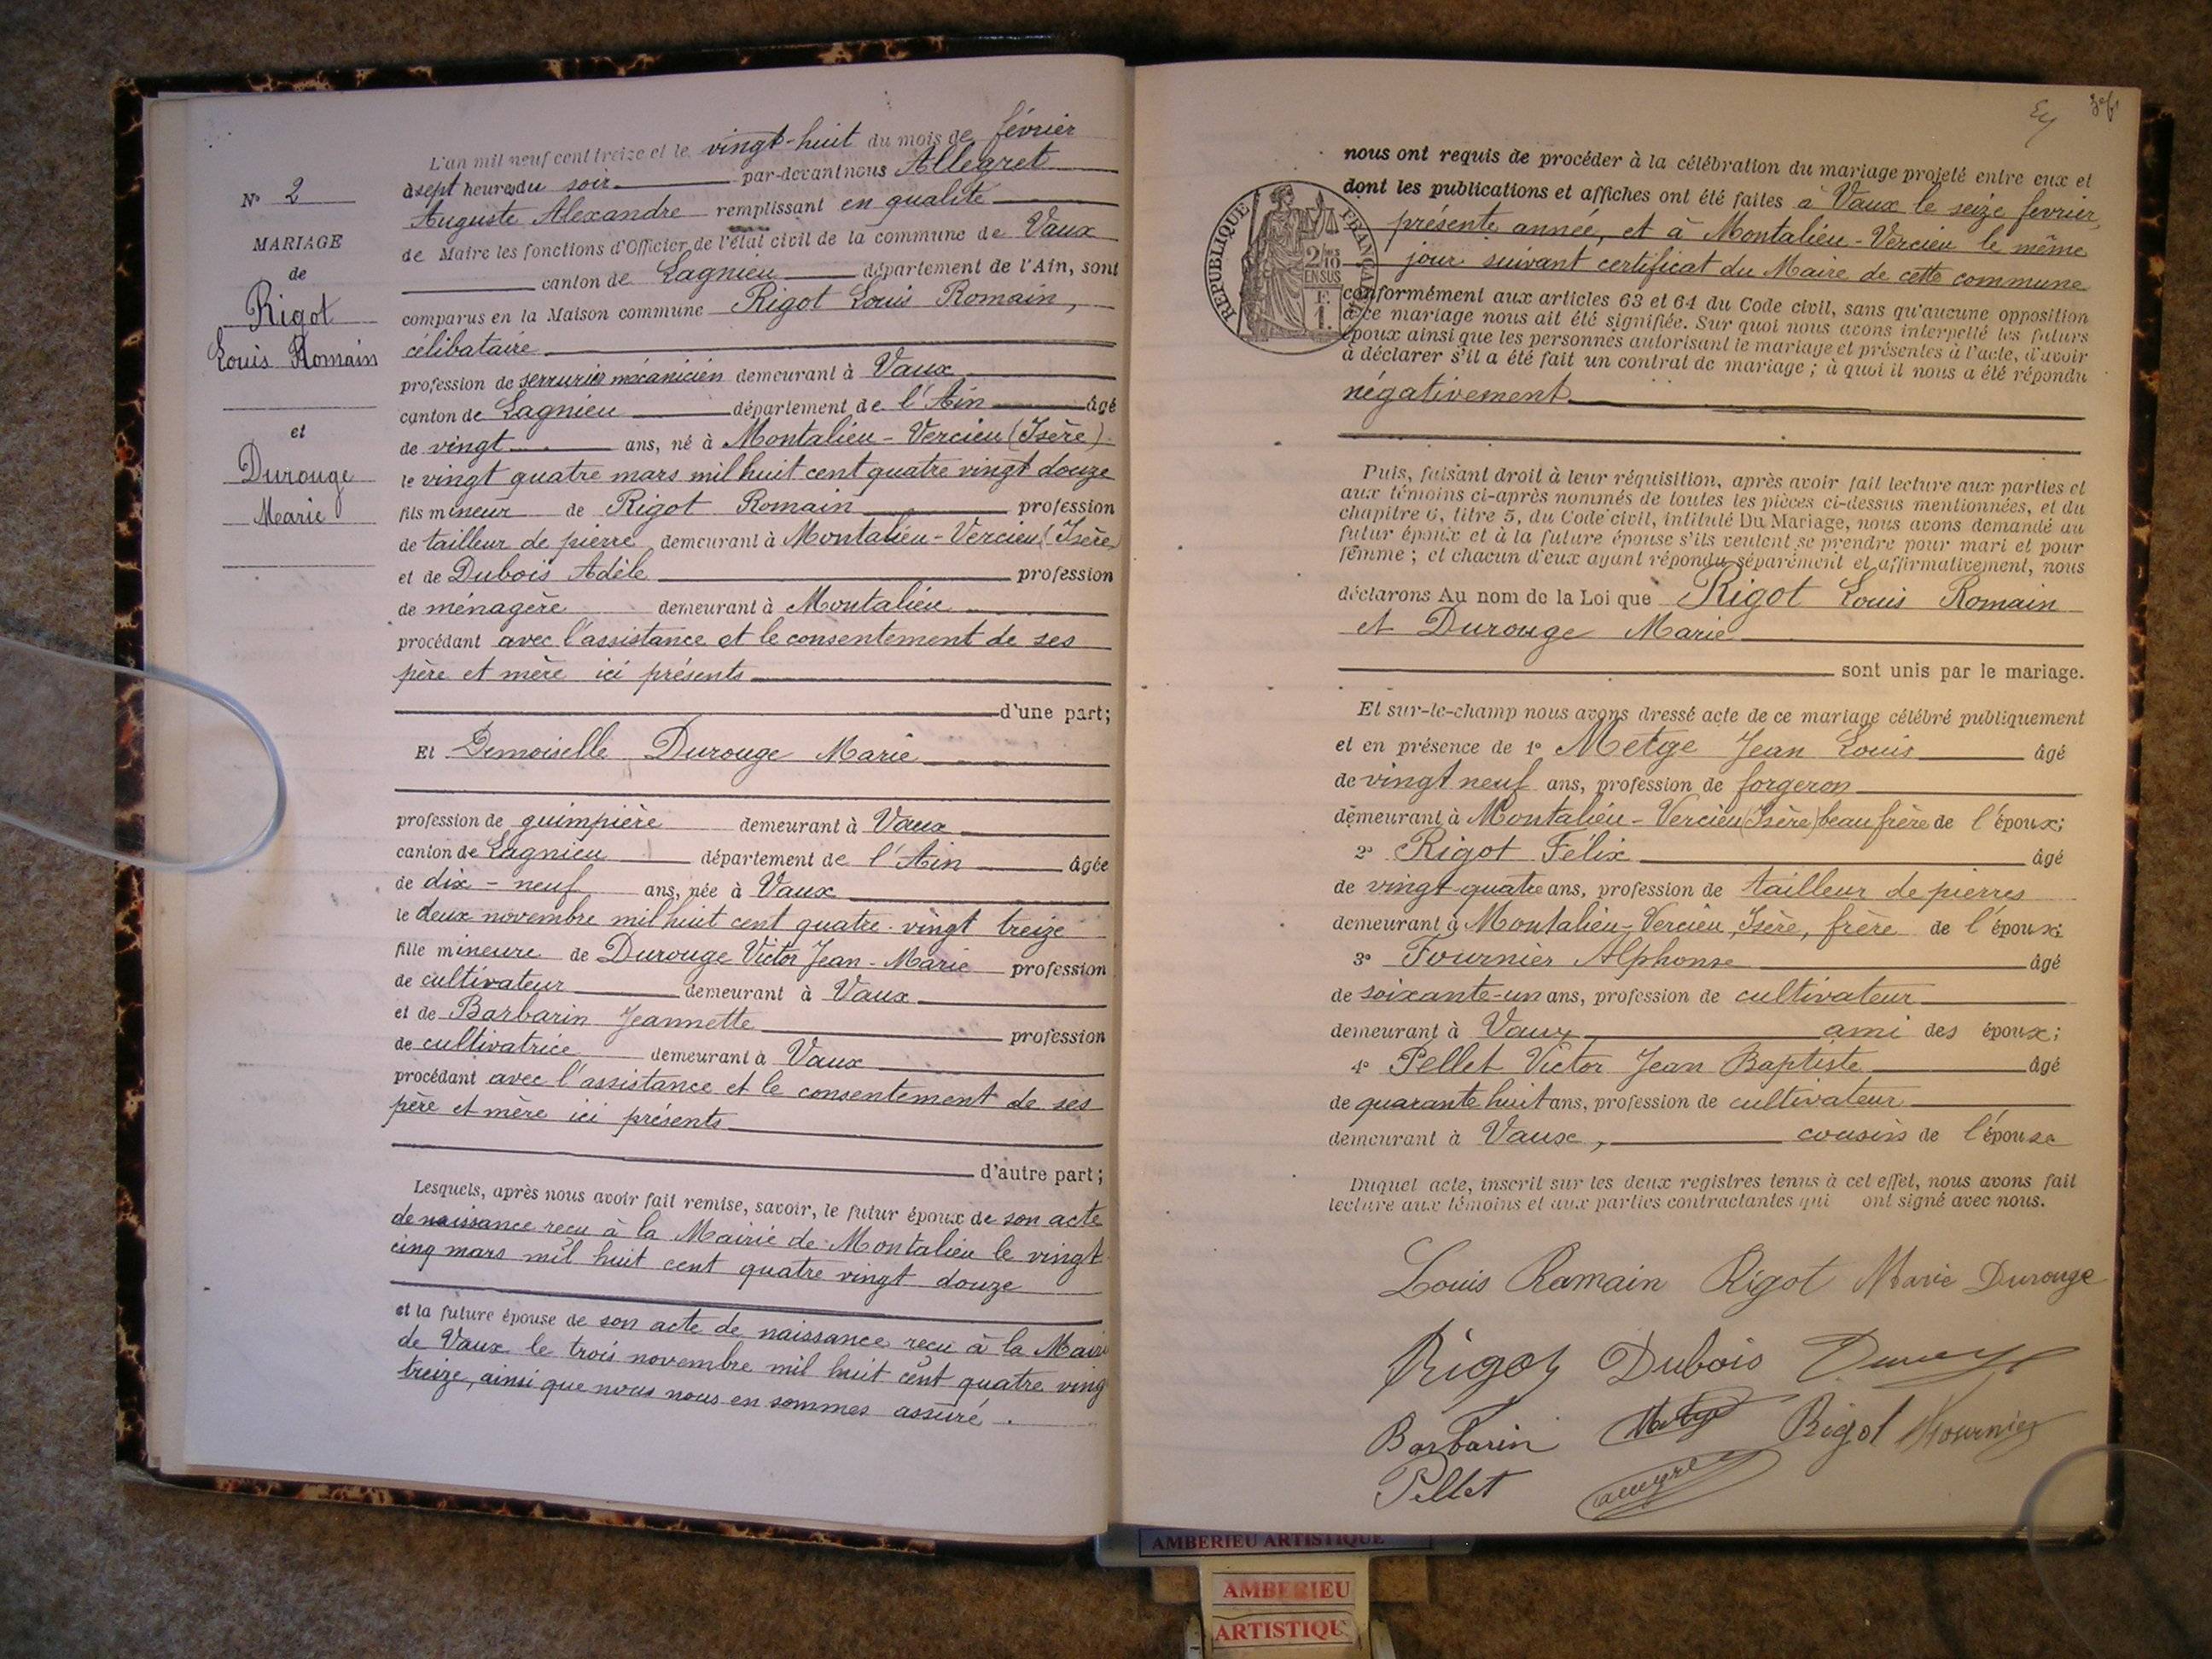 L'an mil neuf cent treize et le vingt-huit du mois de février
à sept heures du soir par-devant nous Allegret
Auguste Alexandre remplissant en qualité
de Maire les fonctions d'Officier de l'état civil de la commune de Vaux
canton de Lagnieu département de l'Ain, sont
comparus en la Maison commune Rigot Louis Romain,
célibataire
profession de serrurier mécanicien demeurant à Vaux
canton de Lagnieu département de l'Ain âgé
de vingt ans, né à Montalieu-Vercieu (Isère)
le vingt quatre mars mil huit cent quatre vingt douze
fils mineur de Rigot Romain profession
de tailleur de pierre demeurant à Montalieu-Vercieu (Isère)
et de Dubois Adèle profession
de ménagère demeurant à Montalieu
procédant avec l'assistance et le consentement de ses
père et mère ici présents
d'une part;
Et Demoiselle Durouge Marie
profession de guimpière demeurant à Vaux
canton de Lagnieu département de l'Ain âgée
de dix-neuf ans, née à Vaux
le deux novembre mil huit cent quatre-vingt treize
fille mineure de Durouge Victor Jean-Marie profession
de cultivateur demeurant à Vaux
et de Barbarin Jeannette profession
de cultivatrice demeurant à Vaux
procédant avec l'assistance et le consentement de ses
père et mère ici présents
d'autre part;
Lesquels, après nous avoir fait remise, savoir, le futur époux de son acte
de naissance reçu à la Mairie de Montalieu le vingt
cinq mars mil huit cent quatre vingt douze
et la future épouse de son acte de naissance reçu à la Mairi
de Vaux le trois novembre mil huit cent quatre ving
treize, ainsi que nous nous en sommes assuré.
No 2
MARIAGE
de
Rigot
Louis Romain
et
Durouge
Marie
nous ont requis de procéder à la célébration du mariage projeté entre eux et
dont les publications et affiches ont été faites à Vaux le seize février,
présente année, et à Montalieu-Vercieu le même
jour suivant certificat du Maire de cette commune
conformément aux articles 63 et 64 du Code civil, sans qu'aucune opposition
à ce mariage nous ait été signifiée. Sur quoi nous avons interpellé les futurs
époux ainsi que les personnes autorisant le mariage et présentes à l'acte, d'avoir
à déclarer s'il a été fait un contrat de mariage; à quoi il nous a été répondu
négativement
REPUBLIQUE FRANÇAISE
2/10
EN SUS
F.
1.
Puis, faisant droit à leur réquisition, après avoir fait lecture aux parties et
aux témoins ci-après nommés de toutes les pièces ci-dessus mentionnées, et du
chapitre 6, titre 5, du Code civil, intitulé Du Mariage, nous avons demandé au
futur époux et à la future épouse s'ils veulent se prendre pour mari et pour
femme; et chacun d'eux ayant répondu séparément et affirmativement, nous
déclarons Au nom de la Loi que Rigot Louis Romain
et Durouge Marie
sont unis par le mariage.
Et sur-le-champ nous avons dressé acte de ce mariage célébré publiquement
et en présence de 1o Metge Jean Louis âgé
de vingt neuf ans, profession de forgeron
demeurant à Montalieu-Vercieu (Isère) beau frère de l'époux;
2o Rigot Félix âgé
de vingt-quatre ans, profession de tailleur de pierres
demeurant à Montalieu-Vercieu, Isère, frère de l'époux;
3o Fournier Alphonse âgé
de soixante-un ans, profession de cultivateur
demeurant à Vaux ami des époux;
4o Pellet Victor Jean Baptiste âgé
de quarante huit ans, profession de cultivateur
demeurant à Vaux, cousin de l'épouse
Duquel acte, inscrit sur les deux registres tenus à cet effet, nous avons fait
lecture aux témoins et aux parties contractantes qui ont signé avec nous.
Louis Romain Rigot Marie Durouge
Rigot Dubois
Barbarin Metge Rigot Fournier
Pellet
AMBERIEU ARTISTIQUE
AMBERIEU
ARTISTIQU